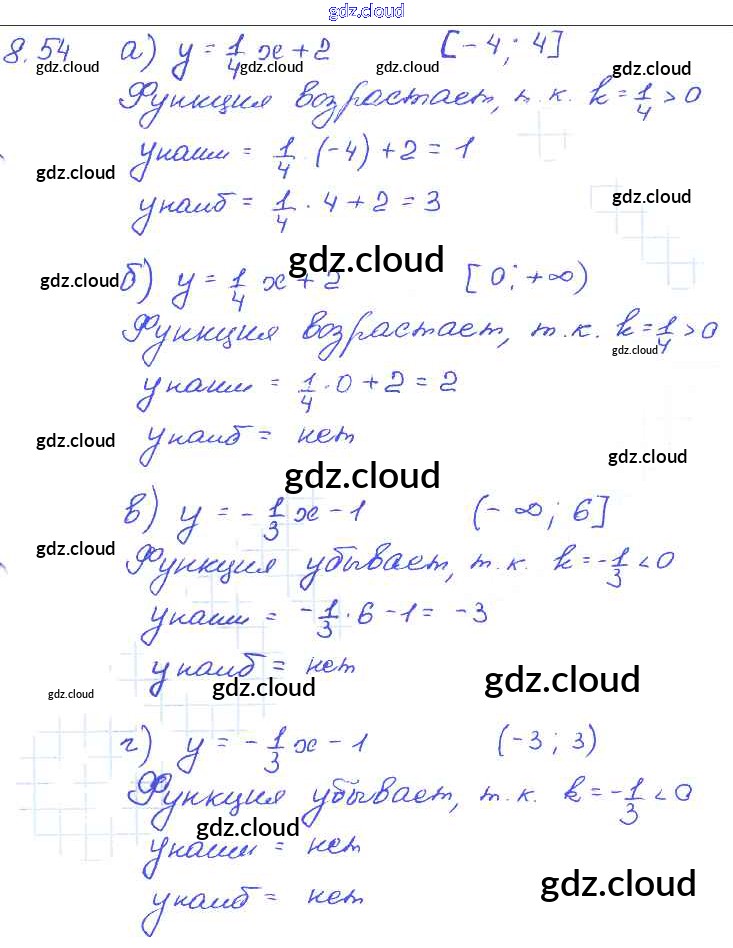 gdz.cloud
8.54 а) y = 1/4 x + 2 [-4; 4]
gdz.cloud gdz.cloud gdz.cloud gdz.cloud
Функция возрастает, т.к. k = 1/4 > 0
yнаим = 1/4 · (-4) + 2 = 1
gdz.cloud
yнаиб = 1/4 · 4 + 2 = 3
gdz.cloud
gdz.cloud
gdz.cloud б) y = 1/4 x + 2 [0; +∞)
Функция возрастает, т.к. k = 1/4 > 0
gdz.cloud
yнаим = 1/4 · 0 + 2 = 2
gdz.cloud yнаиб = нет
gdz.cloud
gdz.cloud
в) y = - 1/3 x - 1 (-∞; 6]
gdz.cloud
Функция убывает, т.к. k = - 1/3 < 0
yнаим = - 1/3 · 6 - 1 = -3
yнаиб = нет
gdz.cloud gdz.cloud gdz.cloud
г) y = - 1/3 x - 1 (-3; 3)
Функция убывает, т.к. k = - 1/3 < 0
gdz.cloud
yнаим = нет
gdz.cloud
yнаиб = нет